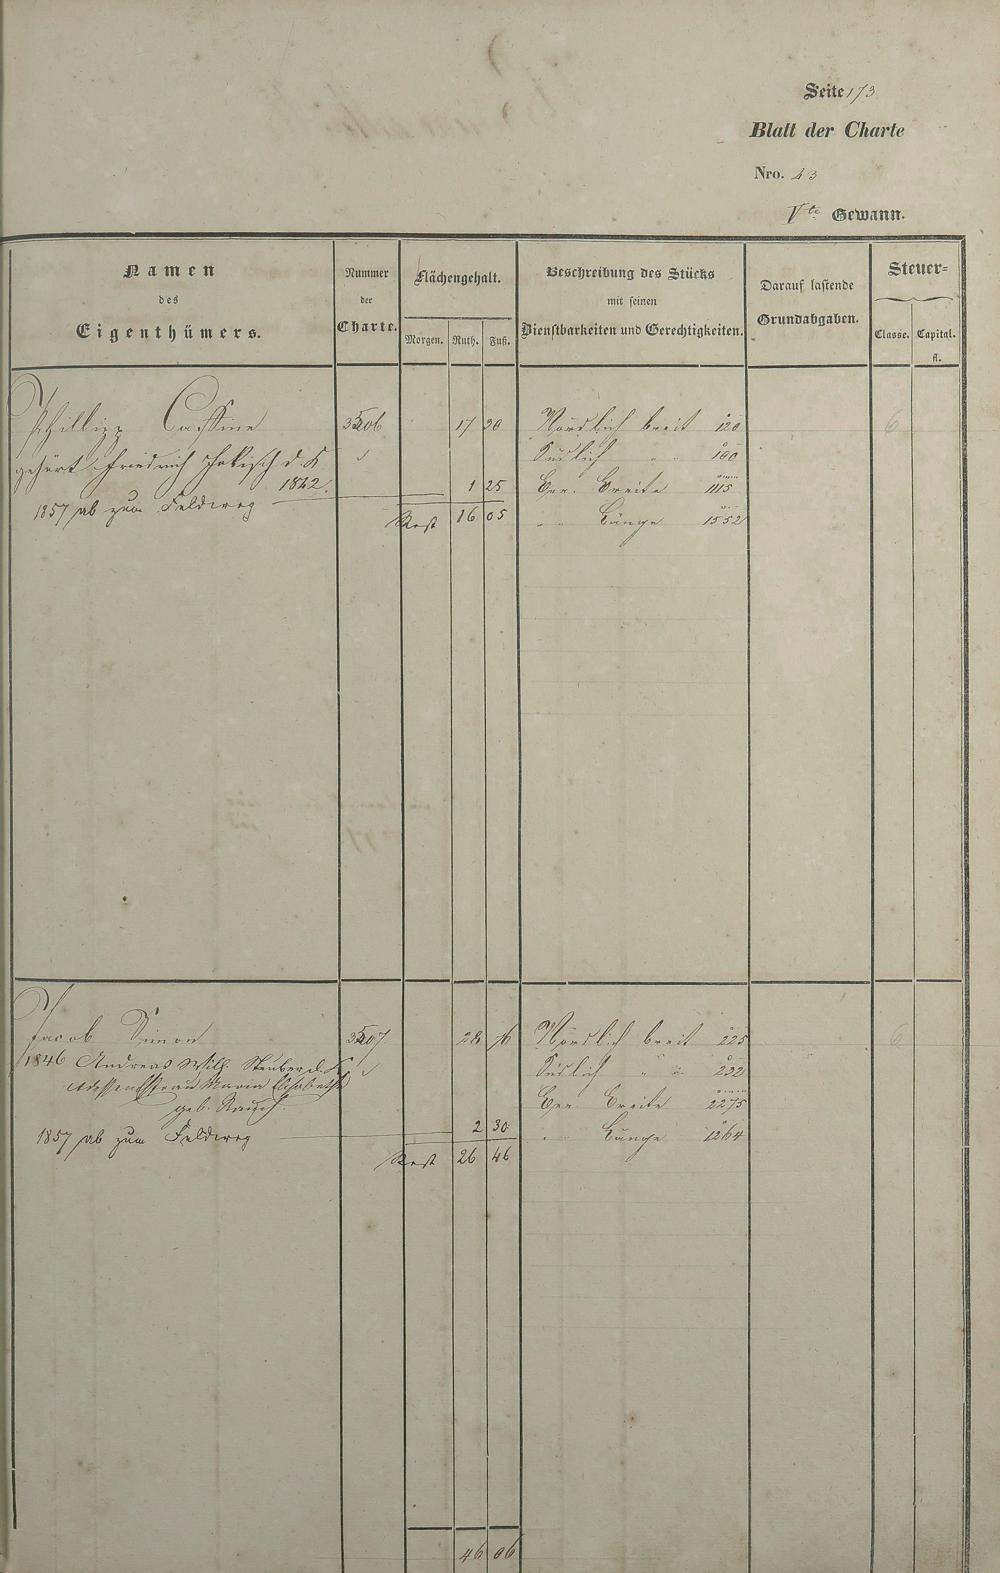 Seite 173
Blatt der Charte
Nro. 43
Vte Gewann.
Namen
des
Eigenthümers.
Nummer
der
Charte.
Flächengehalt.
Morgen. Ruth. Fuß.
Beschreibung des Stücks
mit seinen
Dienstbarkeiten und Gerechtigkeiten.
Darauf lastende
Grundabgaben.
Steuer=
Classe. Capital.
fl.
Phillipp Cassine 3506 17 30 Nördlich breit 120 6
gehört Friedrich d. K Südlich " " 100
1842. 1 25 Ger. Breite 1115
1857 ab zum Feldweg Rest 16 05 " " Länge 1552
Jacob Simon 3507 28 76 Nördlich breit 225 6
1846 Andreas Will. Steuber d. K Südlich " " 232
Maria Elisabetha Ger. Breite 2275
geb. Rausch. 2 30
1857 ab zum Feldweg " Länge 1264
Rest 26 46
46 06